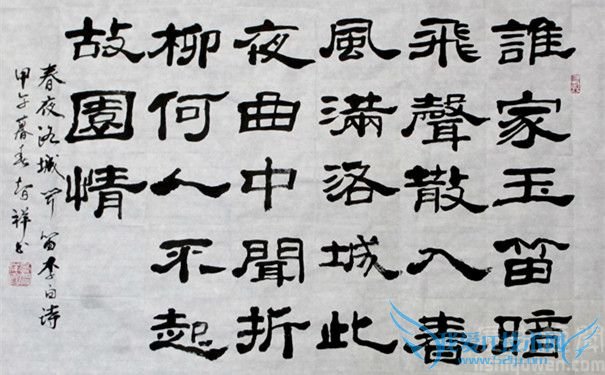 誰家玉笛暗
飛聲散入春
風滿洛城此
夜曲中聞折
柳何人不起
故園情
春夜洛城聞笛李白诗
甲午暮春智祥书